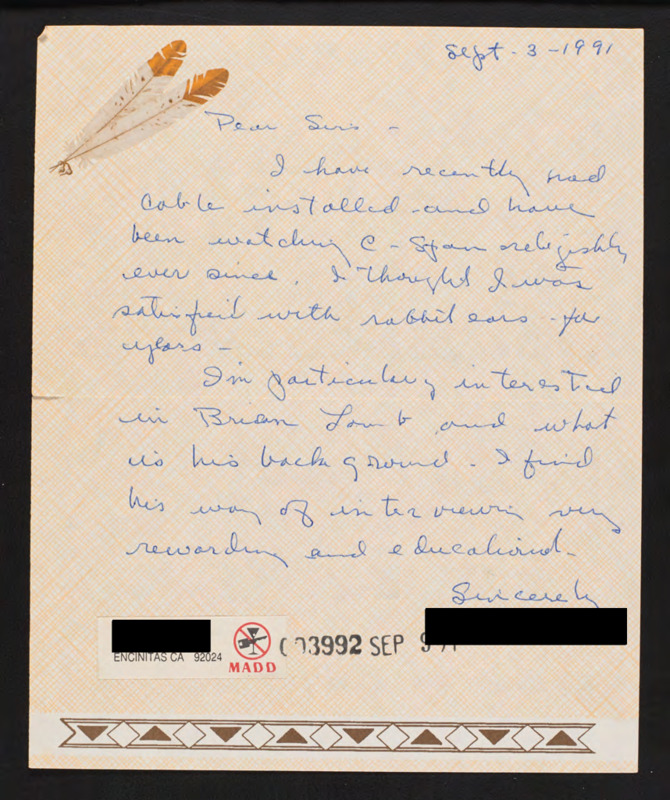 Sept-3-1991
Dear Sirs -
I have recently had
cable installed and have
been watching C-Span religishly
ever since. I thought I was
satisfied with rabbit ears for
years -
I'm particularly interested
in Brian Lamb and what
is his back ground. I find
his way of interviewing very
rewarding and educational.
Sincerely
003992 SEP 9 91
ENCINITAS CA 92024
MADD